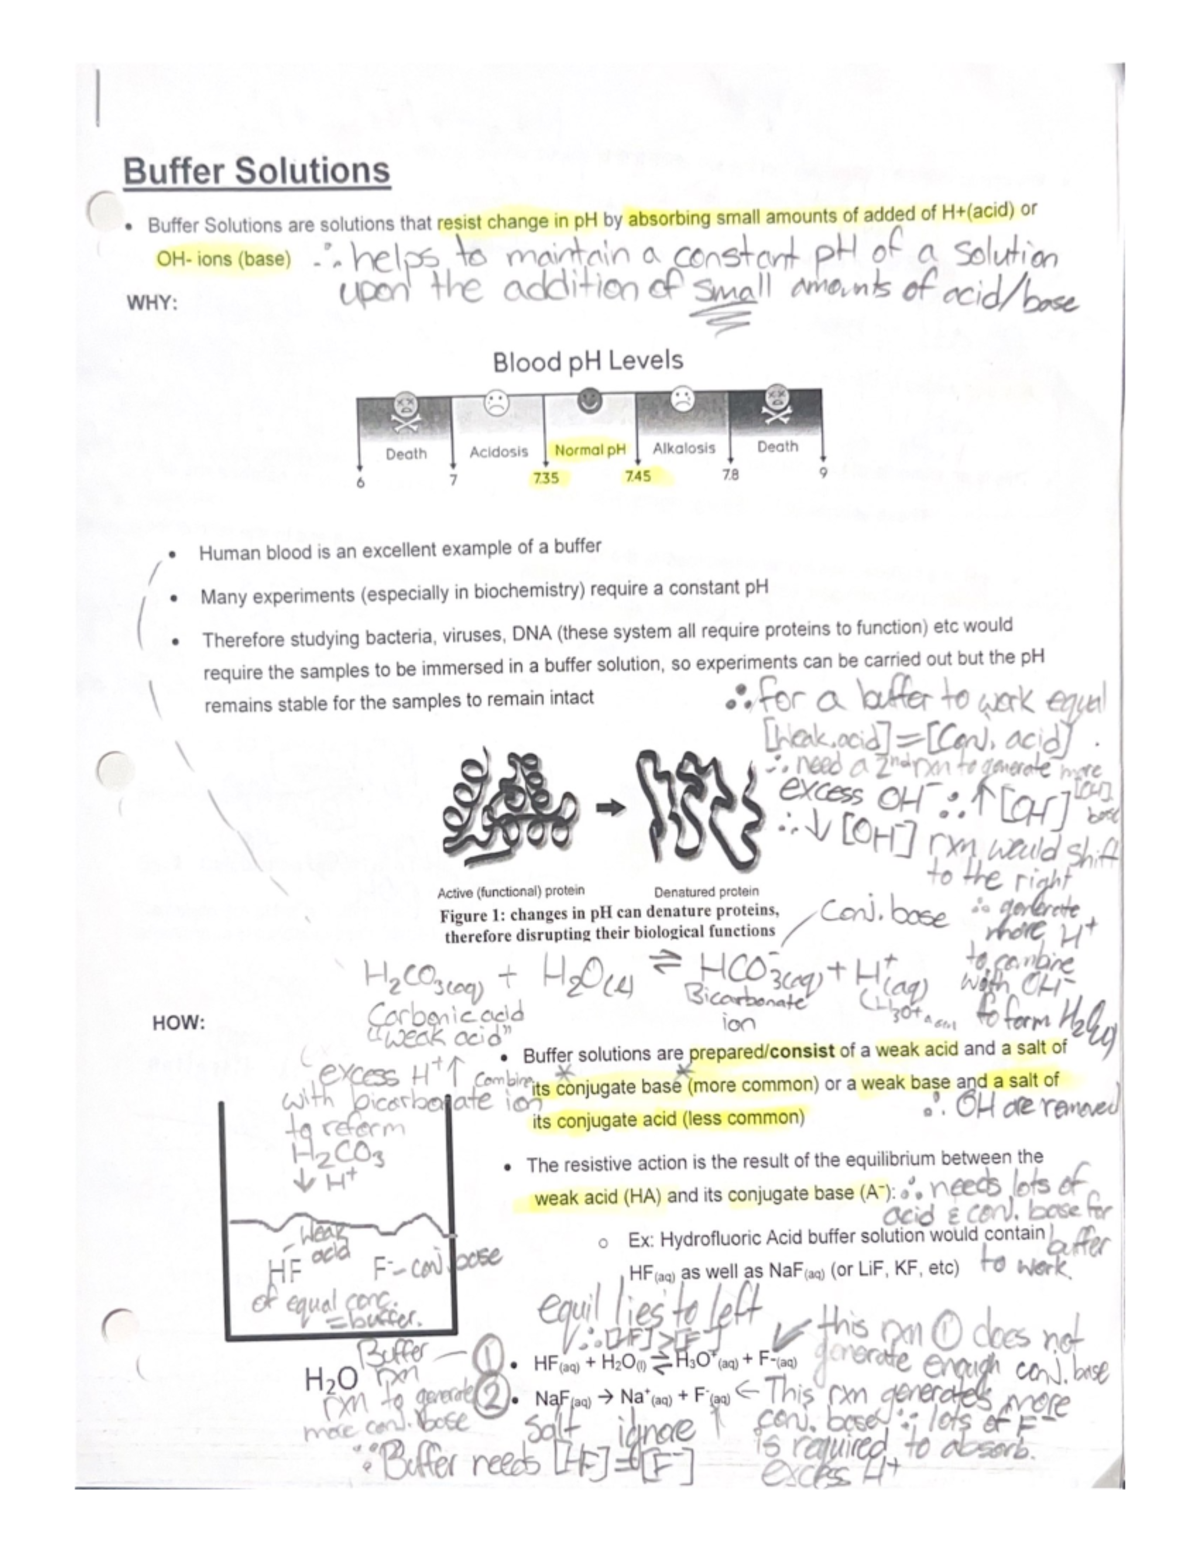 Buffer Solutions
• Buffer Solutions are solutions that resist change in pH by absorbing small amounts of added of H+(acid) or
OH- ions (base) ∴ helps to maintain a constant pH of a solution
upon the addition of small amounts of acid/base
WHY:
Blood pH Levels
Death Acidosis Normal pH Alkalosis Death
6 7 7.35 7.45 7.8 9
• Human blood is an excellent example of a buffer
• Many experiments (especially in biochemistry) require a constant pH
• Therefore studying bacteria, viruses, DNA (these system all require proteins to function) etc would
require the samples to be immersed in a buffer solution, so experiments can be carried out but the pH
remains stable for the samples to remain intact
∴ for a buffer to work equal
[Weak acid] = [Conj. acid]
∴ need a 2nd rxn to generate more
excess OH⁻ ∴ ↑ [OH]
∴ ↓ [OH⁻] rxn would shift
to the right
∴ generate
more H⁺
to combine
with OH⁻
to form H₂O(l)
∴ OH are removed
Active (functional) protein Denatured protein
Figure 1: changes in pH can denature proteins,
therefore disrupting their biological functions
Conj. base
H₂CO₃(aq) + H₂O(l) ⇌ HCO₃⁻(aq) + H⁺(aq)
Carbonic acid
"weak acid"
Bicarbonate
ion
HOW:
excess H⁺↑ combine
with bicarbonate ion
to reform
H₂CO₃
↓ H⁺
• Buffer solutions are prepared/consist of a weak acid and a salt of
its conjugate base (more common) or a weak base and a salt of
its conjugate acid (less common)
• The resistive action is the result of the equilibrium between the
weak acid (HA) and its conjugate base (A⁻): ∴ needs lots of
acid & conj. base for
buffer
to work.
○ Ex: Hydrofluoric Acid buffer solution would contain
HF(aq) as well as NaF(aq) (or LiF, KF, etc)
weak
acid
HF F⁻ - conj. base
of equal conc.
= buffer.
H₂O
equil lies to left
∴ [HF] > [F⁻]
Buffer rxn — ①
• HF(aq) + H₂O(l) ⇌ H₃O⁺(aq) + F-(aq)
this rxn ① does not
generate enough conj. base
rxn to generate ②
more conj. base
• NaF(aq) → Na⁺(aq) + F⁻(aq) ← This rxn generates more
conj. base ∴ lots of F⁻
is required to absorb
excess H⁺
salt ignore ↑
∴ Buffer needs [HF] = [F⁻]